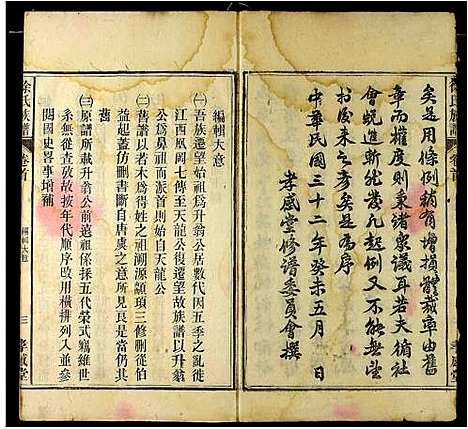 矣是用條例稍有增損體裁率由舊
章而權度則秉諸衆議耳若夫循社
會蛻進新先業凡起例又不能無望
於後来之彥矣是為序
中華民國三十二年癸未五月 日
孝感堂修谱委員會撰
徐氏族譜 卷首
孝感堂
編輯大意
㈠吾族遷望始祖為升翁公居數代因五季之亂徙
江西鳳岡七傳至天龍公復遷望故族譜以升翁
公為鼻祖而派首則始自天龍公
㈡舊譜以者木為得姓之祖溯源顓頊三修刪從
益起蓋仿刪書斷自唐虞之意所見良是當從
舊
㈢原譜所載升翁公前遠祖係採五代榮式竊維世
系無從查攷故按年代順序改用橫排列入並參
閱國史畧事增補
徐氏族譜 卷首 編輯大意 三 孝感堂